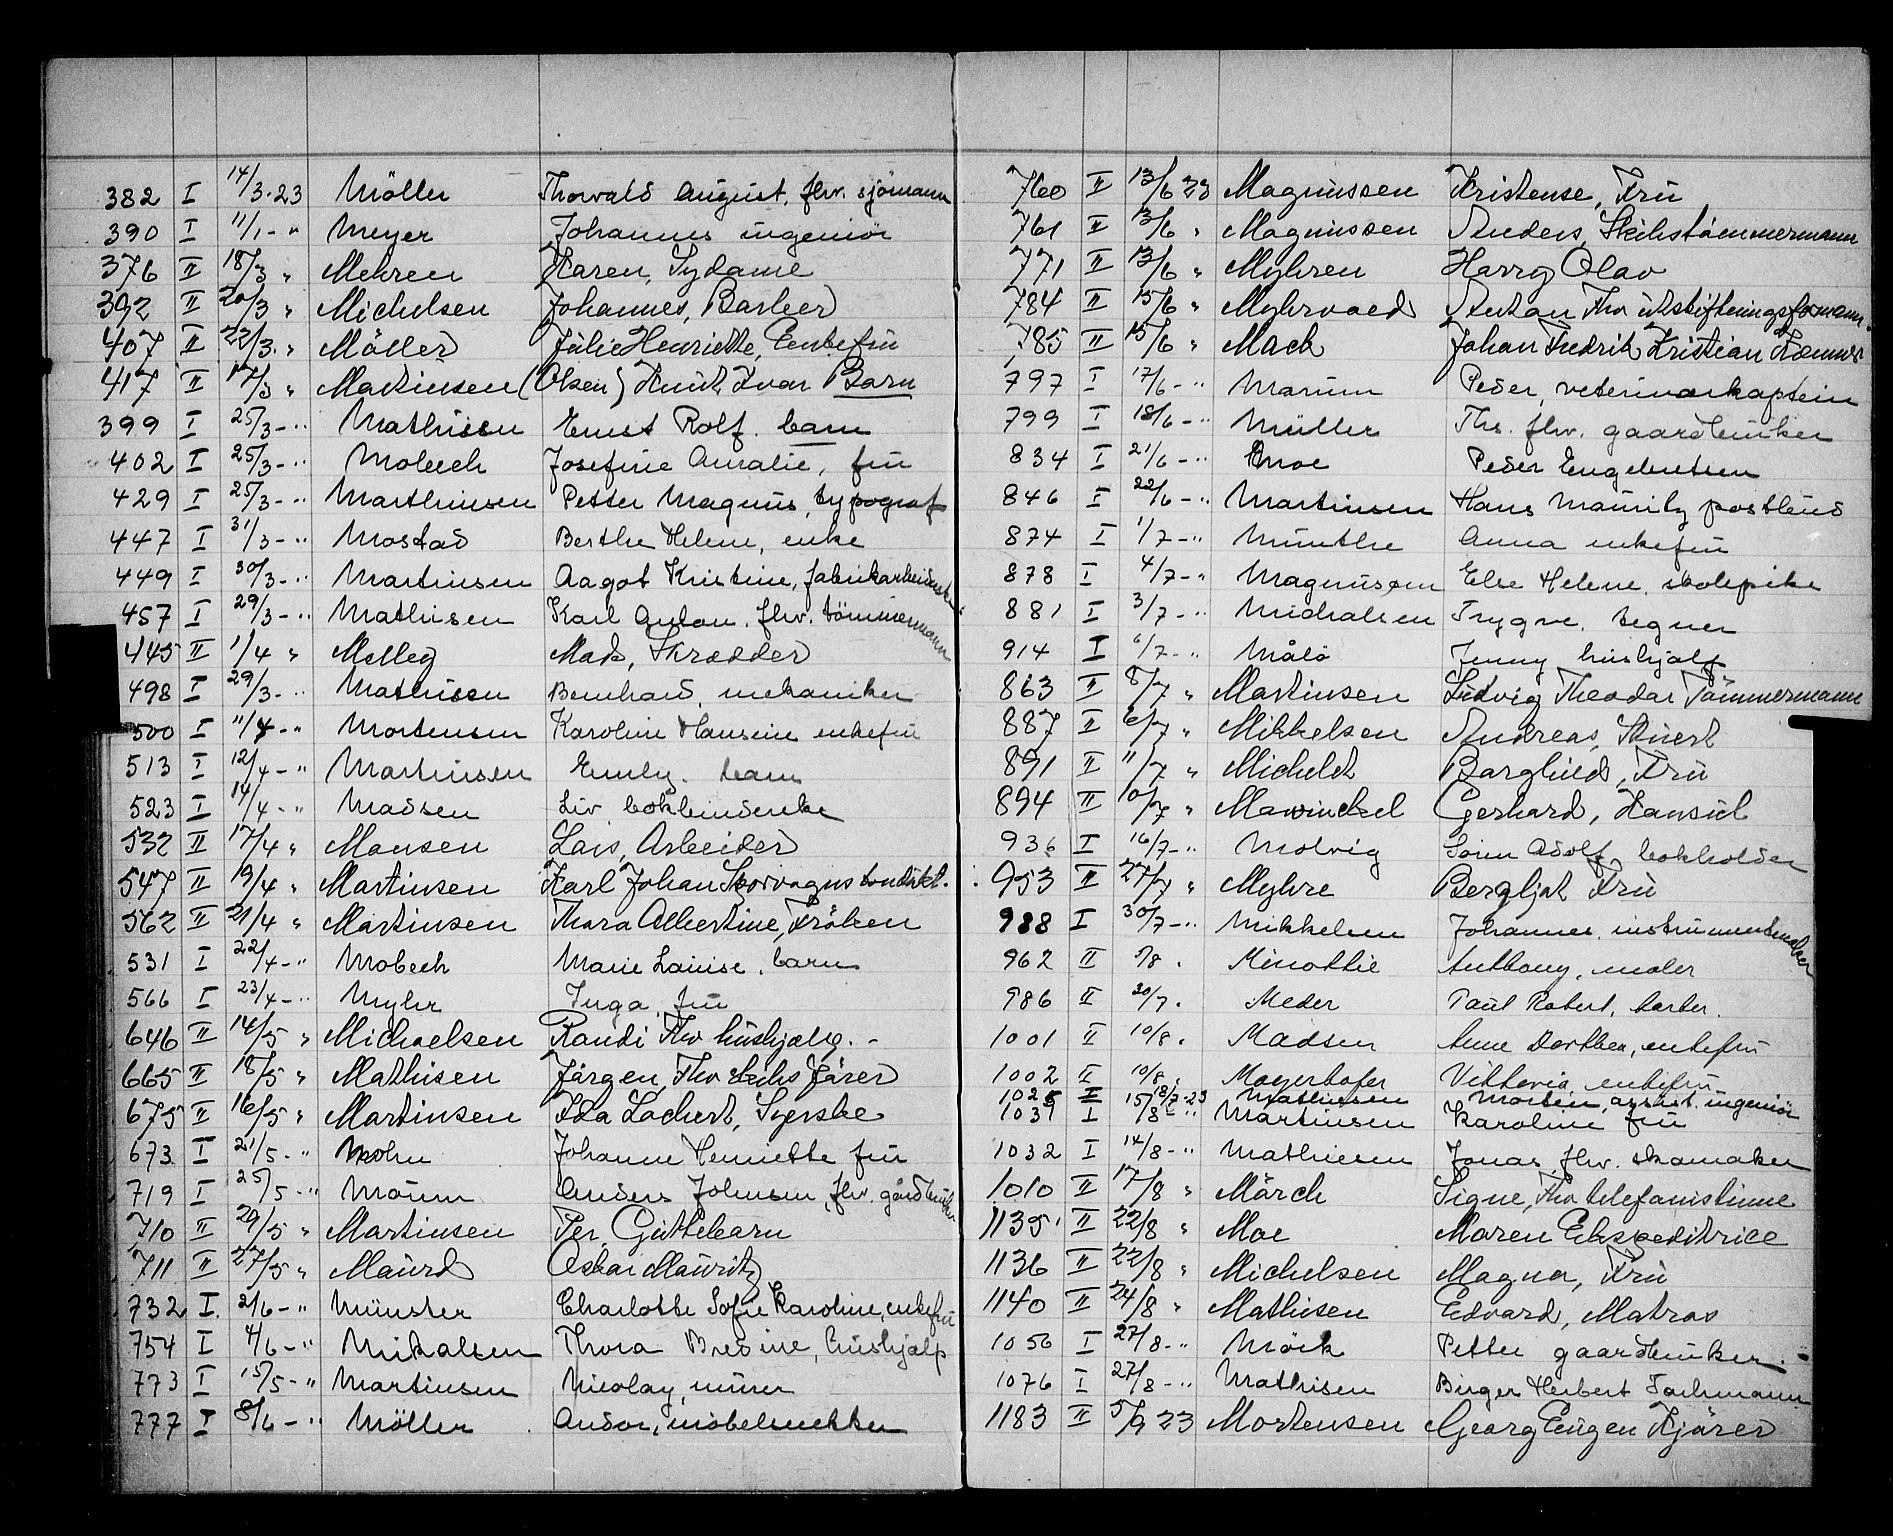 382 I 14/3.23 Möller Thorvald August, fhv. sjömann
390 I 11/1-" Meyer Johannes ingeniör
376 II 18/3 " Mehren Karen, Sydame
392 II 20/3 " Michelsen Johannes, Barber
407 II 22/3. " Möller Julie Henriette, Enkefru
417 II 17/3 " Martinsen (Olsen) Knut Ivar Barn
399 I 25/3-" Mathisen Ernst Rolf. barn
402 I 25/3-" Mobech Josefine Amalie, fru
429 I 25/3-" Marthinsen Petter Magnus, typograf
447 I 31/3-" Mostad Berthe Helene, enke
449 I 30/3-" Martinsen Aagot Kristine, fabrikarbeiderske
457 I 29/3-" Mathisen Karl Anton. fhv. tömmermann
445 II 1/4 " Melleg Max, Skrædder
498 I 29/3-" Mathisen Bernhard, mekaniker
500 I 11/4-" Mortensen Karoline Hansine enkefru
513 I 12/4-" Martinsen Emily. barn
523 I 14/4-" Madsen Liv bokbinderske
532 II 17/4 " Monsen Lars, Arbeider
547 II 19/4 " Martinsen Karl Johan Sporvognskondukt.
562 II 21/4 " Martinsen Thora Albertine, Fröken
531 I 22/4-" Mobech Marie Louise, barn
566 I 23/4-" Myhr Inga, fru
646 II 14/5 " Michaelsen Randi Fhv hushjælp. -
665 II 18/5 " Mathisen Jörgen, Fhv Skibsförer
675 II 16/5 " Martinsen Ida Lochert, Syerske
673 I 21/5-" Mohn Johanne Henriette fru
719 I 25/5-" Moum Anders Johnsen, fhv. gårdbruker
710 II 29/5 " Martinsen Per, Guttebarn
711 II 27/5 " Maurd Oskar Mauritz
732 I. 2/6-" Münster Charlotte Sofie Karoline, enkefru
754 I 4/6-" Mikalsen Thora Bresine, hushjelp
773 I 15/5-" Martinsen Nicolay, murer
777 I 8/6-" Möller Andor, möbelsnekker
760 II 13/6 23 Magnussen Kristense, Fru
761 II 13/6 " Magnussen Anders, Skibstömmermann
771 II 13/6 " Myhren Harry Olav
784 II 15/6 " Myhrvold Anton Fhv utskiftningsformann.
785 II 15/6 " Mack Johan Fredrik Kristian Kemner
797 I 17/6-" Marum Peder, veterinærkaptein
799 I 18/6-" Müller Ths. fhv. gaardbruker
834 I 21/6-" Moe Peder Engebretsen
846 I 22/6-" Martinsen Hans Mauritz postbud
874 I 1/7-" Munthe Anna enkefru
878 I 4/7-" Magnusen Else Helene, skolepike
881 I 3/7-" Michalsen Trygve. tegner
914 I 6/7-" Målö Jenny hushjælp
863 II 8/7 " Martinsen Ludvig Theodor Tömmermann
887 II 6/7 " Mikkelsen Andreas, Stuert
891 II 11/7 " Michelet Borghild, Fru
894 II 10/7 " Mawinckel Gerhard, Konsul
936 I 16/7-" Molvig Sören Adolf, bokholder
953 II 27/7 " Myhre Bergljot Fru
988 I 30/7-" Mikkelsen Johannes, instrumentmaker
962 II 1/8 . Minottie Anthony, maler
986 II 30/7. Meder Paul Robert, barber.
1001 II 10/8. Madsen Anne Dorthea, enkefru
1002 II 10/8. Mayerhofer Viktoria, enkefru
1025 I 18/7-23 Mathiesen Morten, assist. ingeniör
1031 I 15/8-" Martinsen Karoline fru
1032 I 14/8-" Mathiesen Jonas, fhv. skomaker
1010 II 17/8 " Mörch Signe, Fhv telefonistinne
1135 II 22/8 " Moe Maren Ekspeditrice
1136 II 22/8 " Michelsen Magna, Fru
1140 II 24/8 " Mathisen Edvard, Matros
1056 I 27/8-" Mörk Petter gaardbruker.
1076 I 27/8-" Mathisen Birger Herbert
1183 II 5/9 23 Mortensen Georg Eugen Kjörer